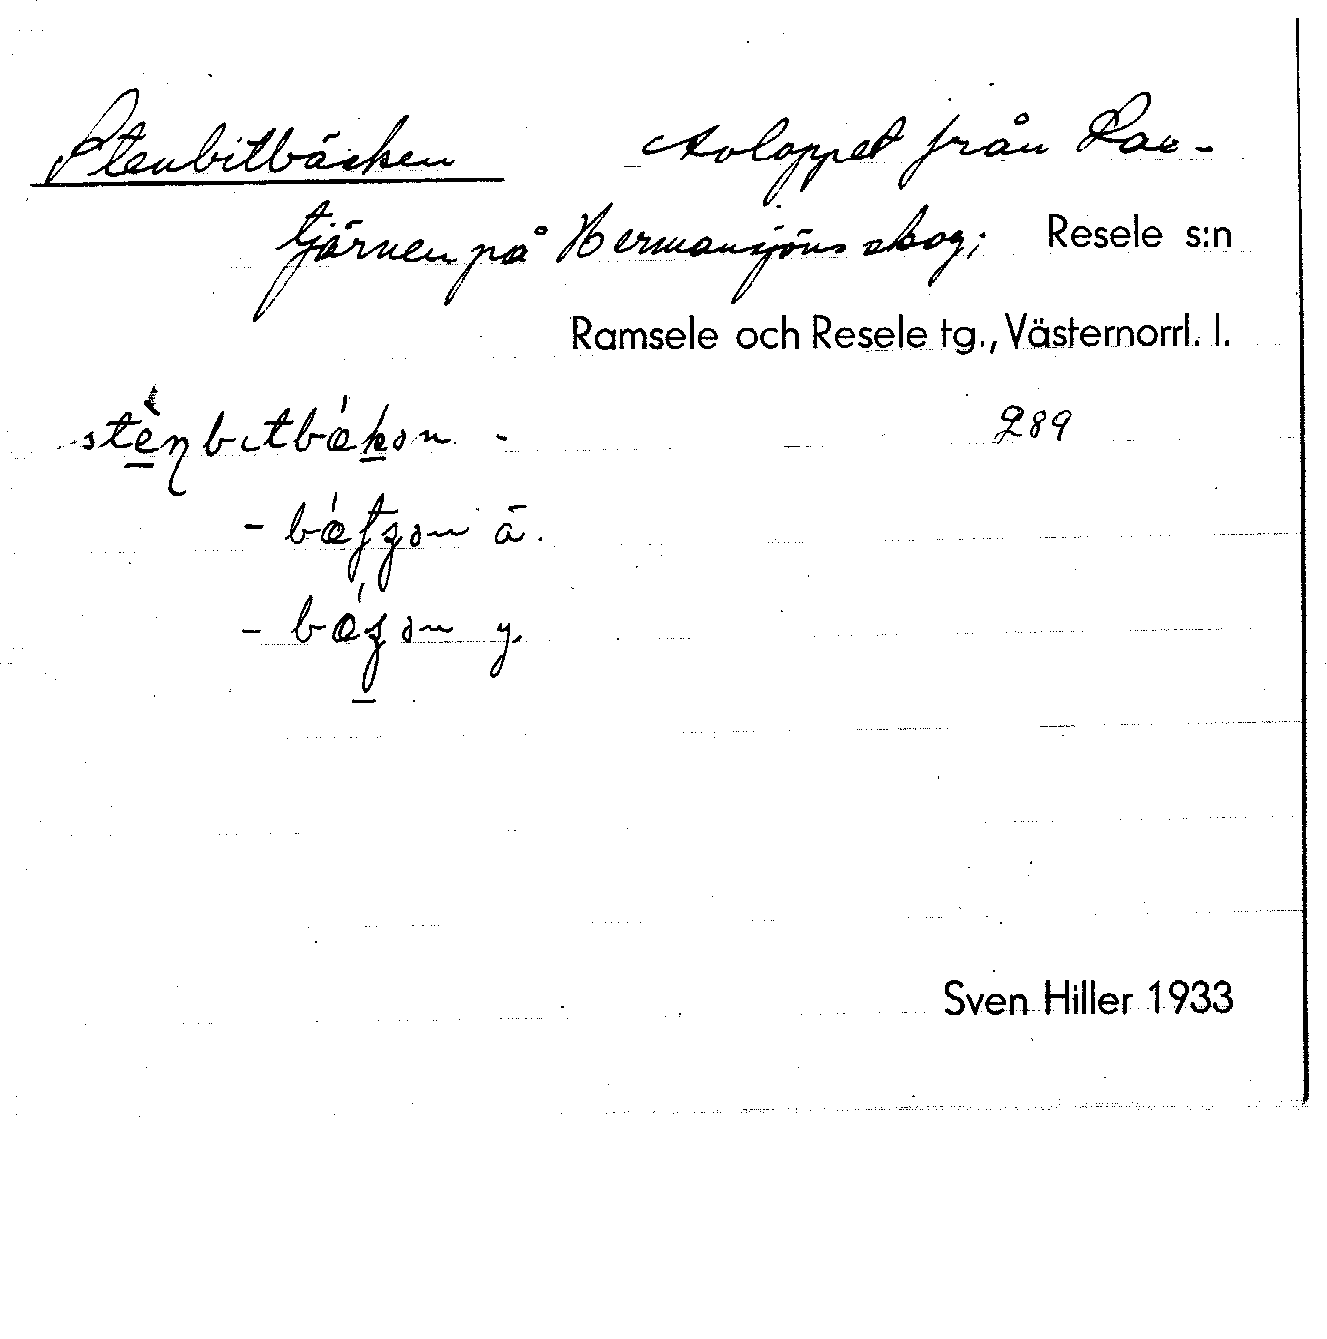 Stenbitbäcken Avloppet från Rac-
tjärnen på Hermansjöns skog; Resele s:n
Ramsele och Resele tg., Västernorrl. l.
289
ä.
y.
Sven Hiller 1933